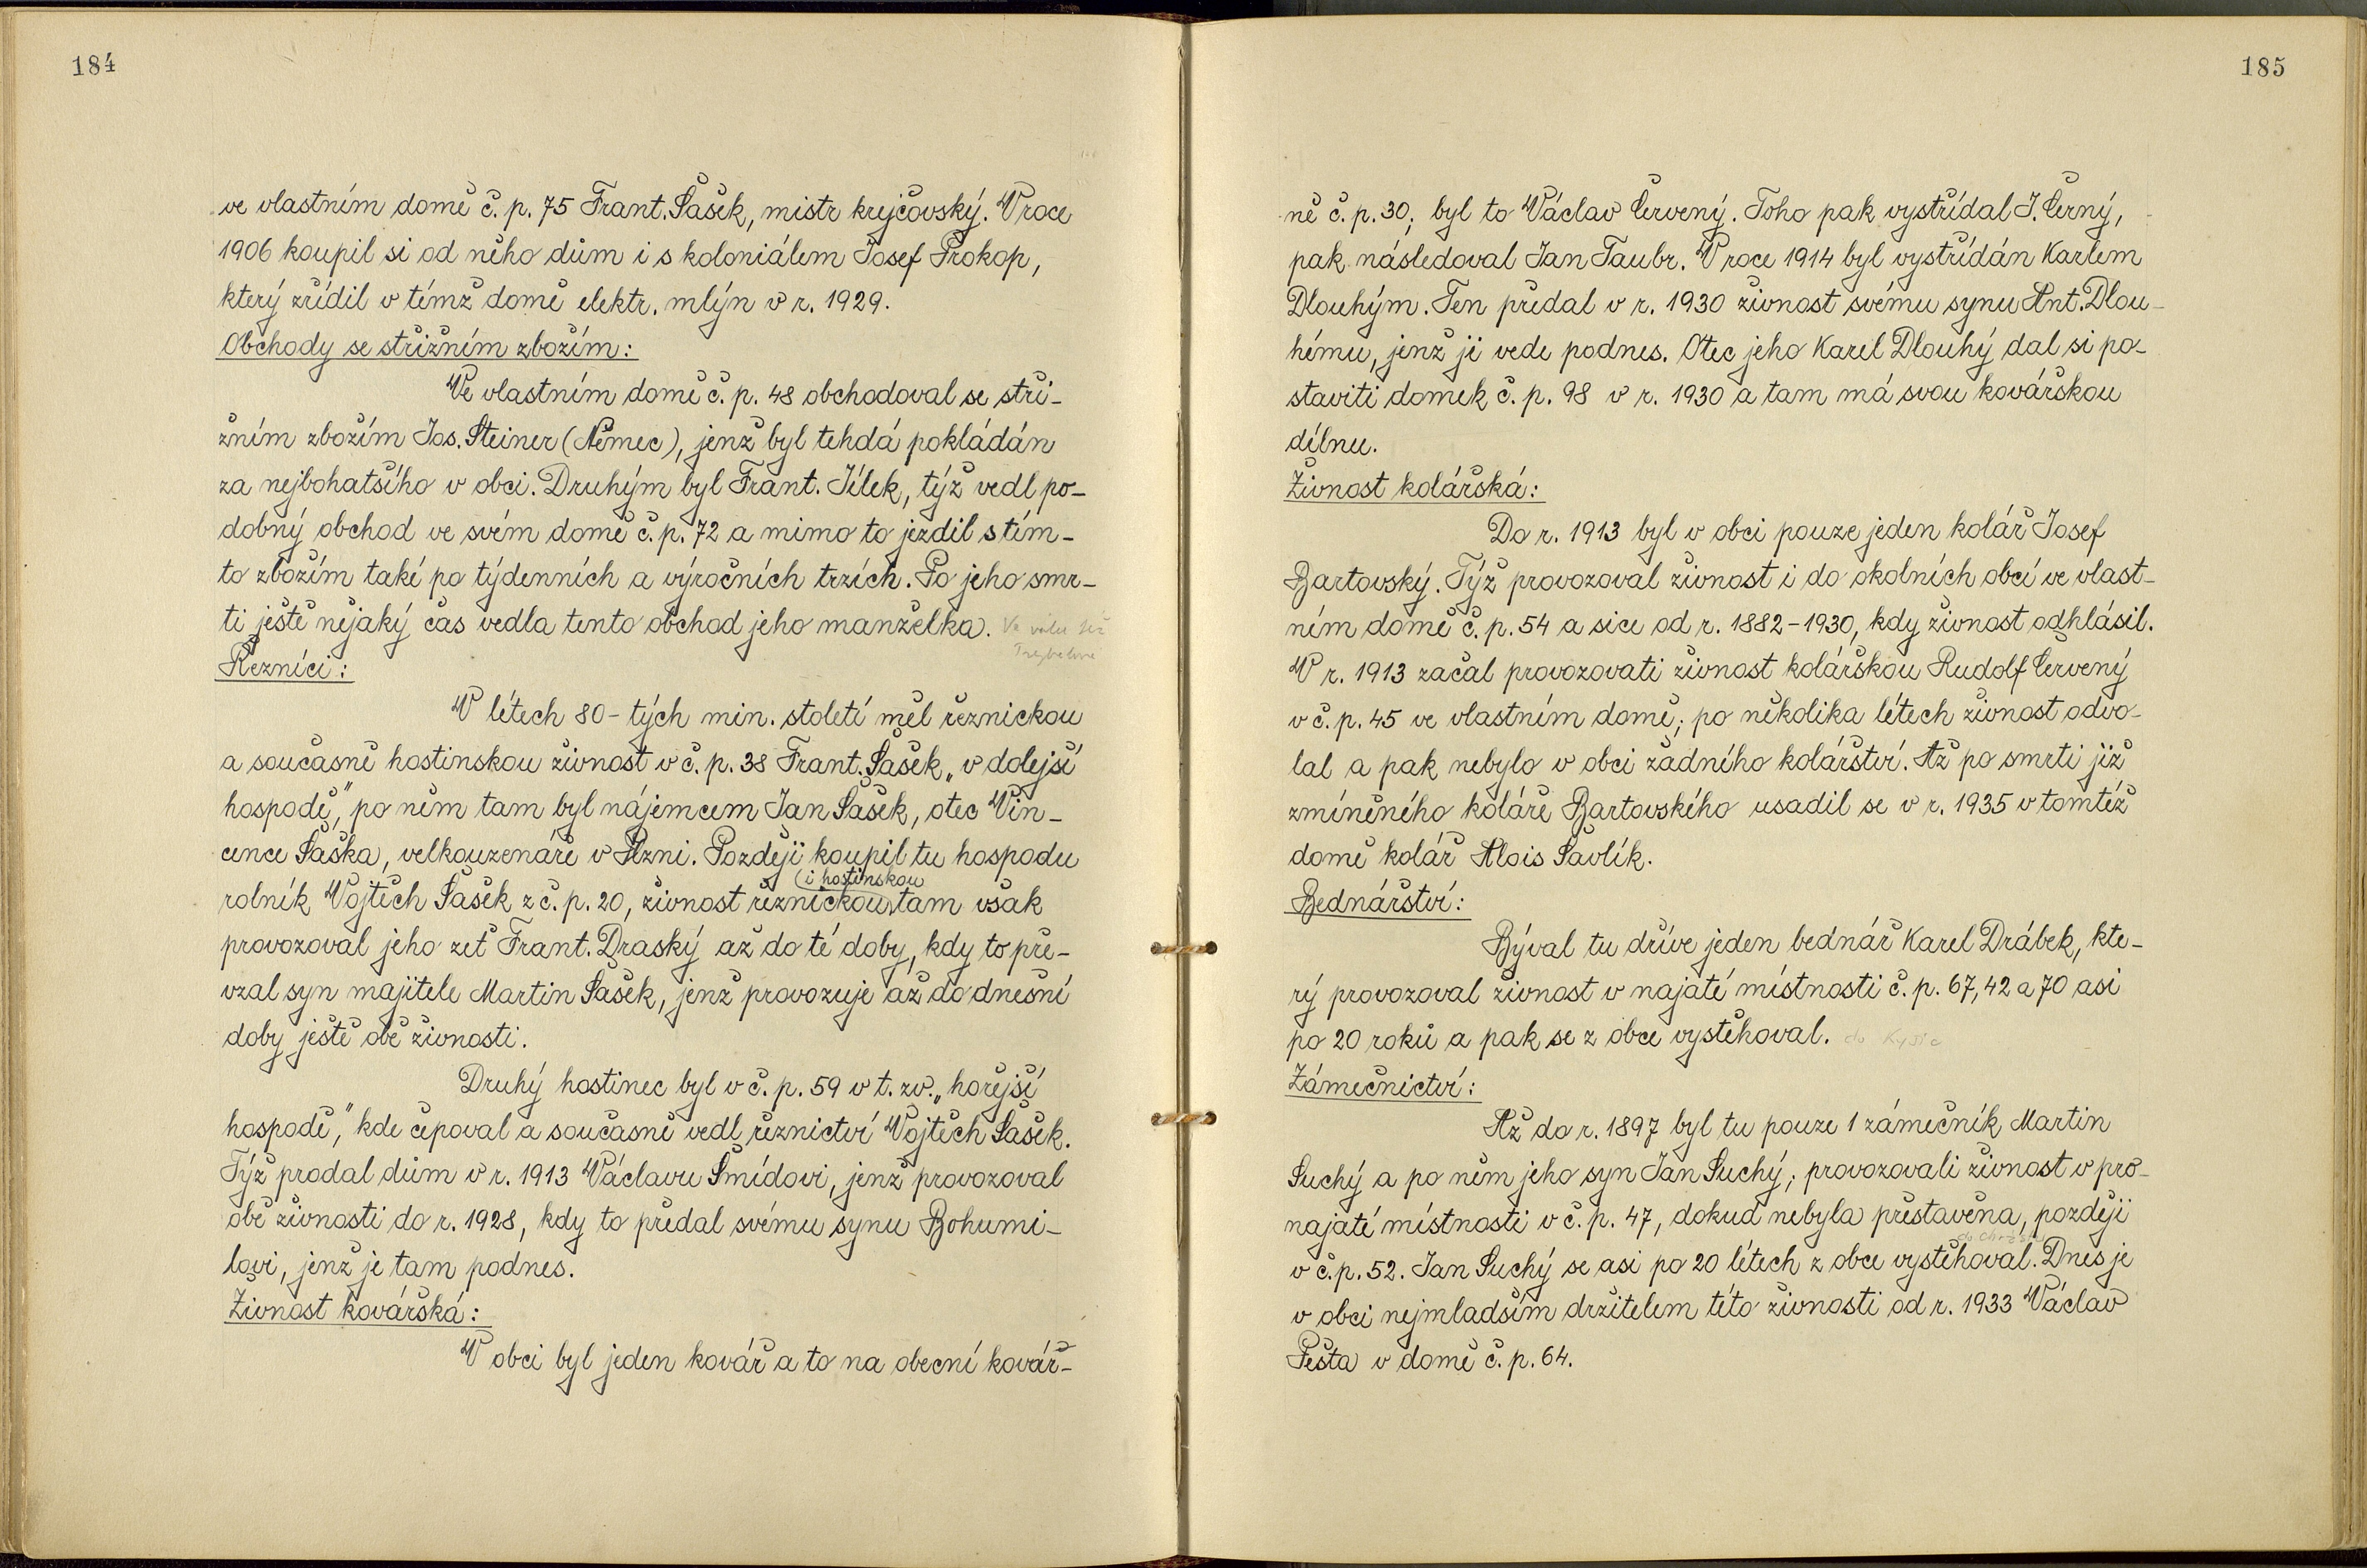 184
ve vlastním domě č. p. 75 Frant. Šašek, mistr krejčovský. V roce
1906 koupil si od něho dům i s koloniálem Josef Prokop,
který zřídil v témž domě elektr. mlýn v r. 1929.
Obchody se střižním zbožím:
Ve vlastním domě č. p. 48 obchodoval se stři-
žním zbožím Jos. Steiner (Němec), jenž byl tehdá pokládán
za nejbohatšího v obci. Druhým byl Frant. Jílek, týž vedl po-
dobný obchod ve svém domě č. p. 72 a mimo to jezdil s tím-
to zbožím také po týdenních a výročních trzích. Po jeho smr-
ti ještě nějaký čas vedla tento obchod jeho manželka.
Řezníci:
V létech 80-tých min. století měl řeznickou
a současně hostinskou živnost v č. p. 38 Frant. Šašek „v dolejší
hospodě," po něm tam byl nájemcem Jan Šašek, otec Vin-
cence Šaška, velkouzenáře v Plzni. Později koupil tu hospodu
i hostinskou
rolník Vojtěch Šašek z č. p. 20, živnost řeznickou tam však
provozoval jeho zeť Frant. Draský až do té doby, kdy to pře-
vzal syn majitele Martin Šašek, jenž provozuje až do dnešní
doby ještě obě živnosti.
Druhý hostinec byl v č. p. 59 v t. zv. „hořejší
hospodě," kde čepoval a současně vedl řeznictví Vojtěch Šašek.
Týž prodal dům v r. 1913 Václavu Šmídovi, jenž provozoval
obě živnosti do r. 1928, kdy to předal svému synu Bohumi-
lovi, jenž je tam podnes.
Živnost kovářská:
V obci byl jeden kovář a to na obecní kovár-
185
ně č. p. 30; byl to Václav Červený. Toho pak vystřídal J. Černý,
pak následoval Jan Taubr. V roce 1914 byl vystřídán Karlem
Dlouhým. Ten předal v r. 1930 živnost svému synu Ant. Dlou-
hému, jenž ji vede podnes. Otec jeho Karel Dlouhý dal si po-
staviti domek č. p. 98 v r. 1930 a tam má svou kovářskou
dílnu.
Živnost kolářská:
Do r. 1913 byl v obci pouze jeden kolář Josef
Bartovský. Týž provozoval živnost i do okolních obcí ve vlast-
ním domě č. p. 54 a sice od r. 1882-1930, kdy živnost odhlásil.
V r. 1913 začal provozovati živnost kolářskou Rudolf Červený
v č. p. 45 ve vlastním domě; po několika létech živnost odvo-
lal a pak nebylo v obci žádného kolářství. Až po smrti již
zmíněného koláře Bartovského usadil se v r. 1935 v tomtéž
domě kolář Alois Šavlík.
Bednářství:
Býval tu dříve jeden bednář Karel Drábek, kte-
rý provozoval živnost v najaté místnosti č. p. 67, 42 a 70 asi
po 20 roků a pak se z obce vystěhoval. do Kyšic
Zámečnictví:
Až do r. 1897 byl tu pouze 1 zámečník Martin
Suchý a po něm jeho syn Jan Suchý; provozovali živnost v pro-
najaté místnosti v č. p. 47, dokud nebyla přestavěna, později
v č. p. 52. Jan Suchý se asi po 20 létech z obce vystěhoval. Dnes je
v obci nejmladším držitelem této živnosti od r. 1933 Václav
Pešta v domě č. p. 64.